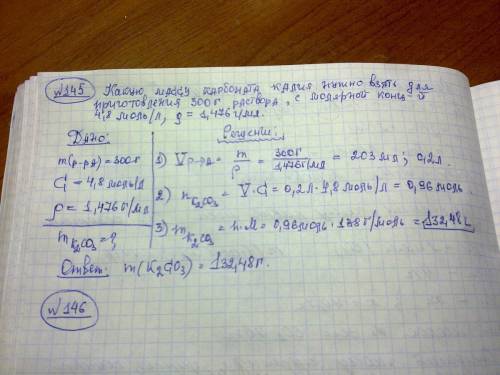 №145 Какую массу карбоната калия нужно взять для
приготовления 300г раствора, с молярной конц-й
4,8 моль/л, ρ = 1,476 г/мл.
Дано:
m(р-ра) = 300г
C = 4,8 моль/л
ρ = 1,476 г/мл
m K2CO3 = ?
Решение:
1) Vр-ра = m/ρ = 300г/1,476г/мл = 203 мл; 0,2л.
2) n K2CO3 = V·C = 0,2л·4,8моль/л = 0,96 моль.
3) m K2CO3 = n·M = 0,96моль·138г/моль = 132,48г
Ответ: m(K2CO3) = 132,48г.
№146